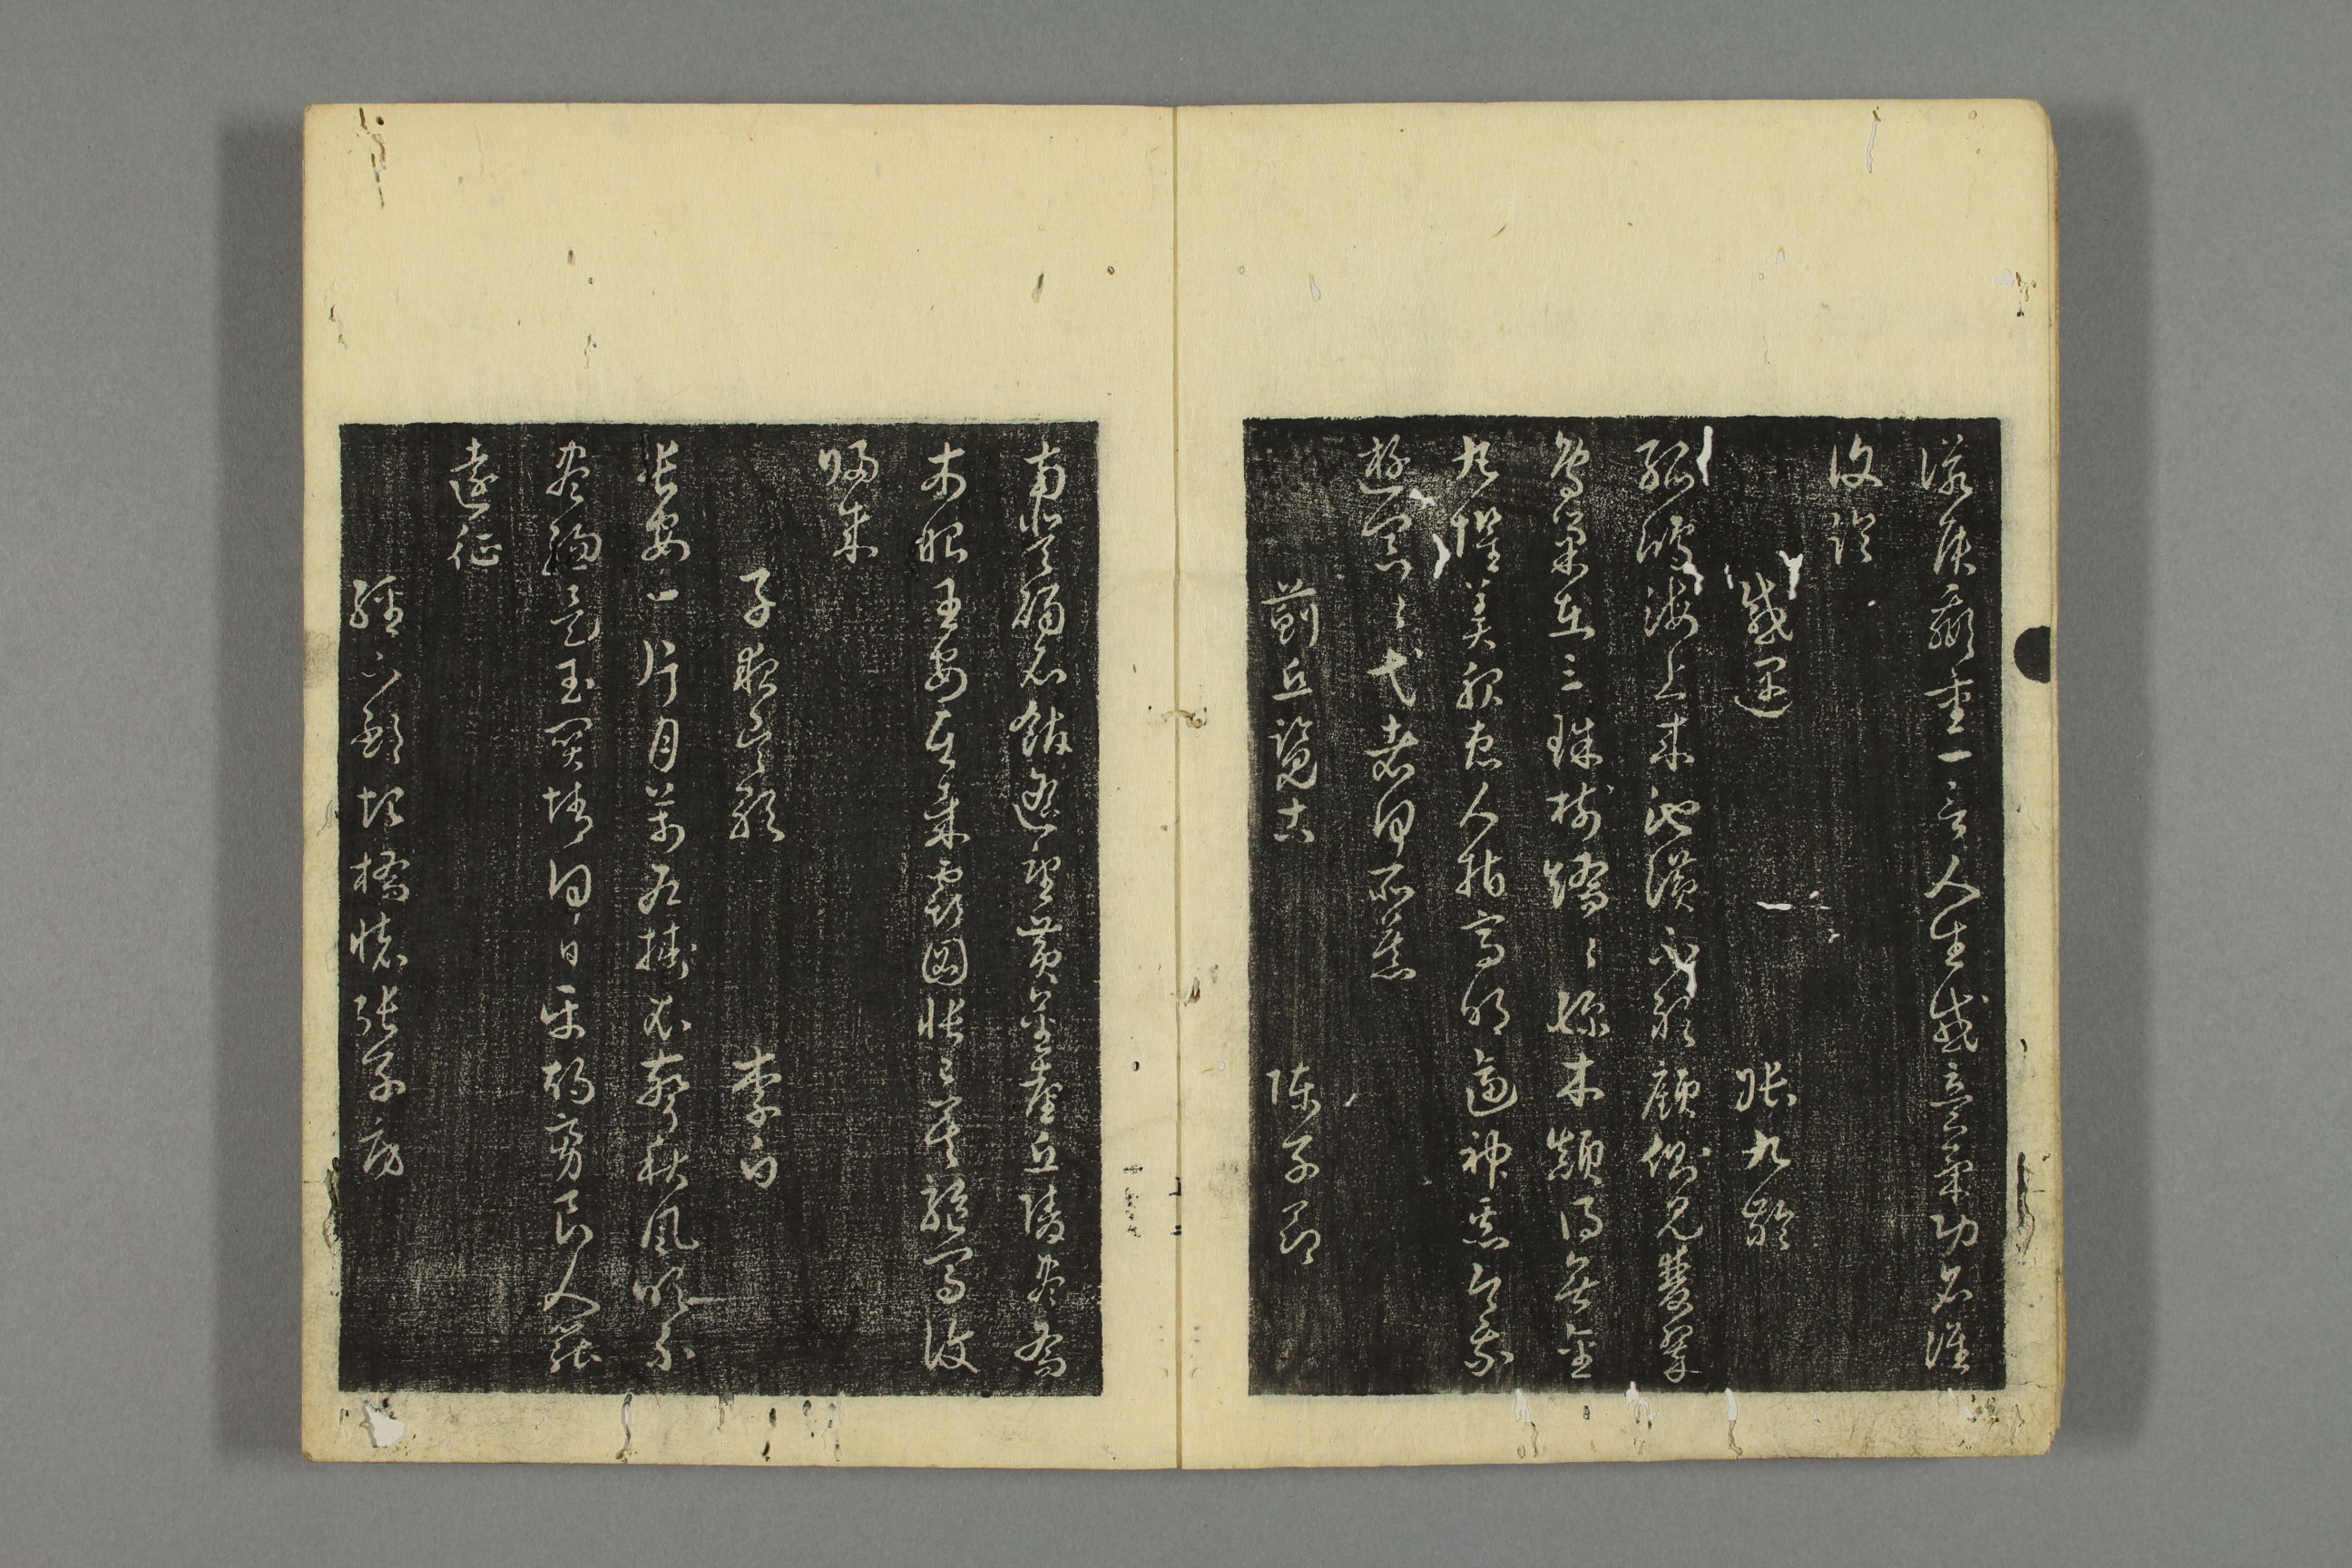 諾侯嬴重一言人生感意氣功名誰
復論
感遇　張九齡
孤鴻海上來池潢不敢顧側見雙翠
鳥巢在三珠樹矯〻珍木顛得無金
丸懼美服患人指高明逼神惡今我
遊冥〻弋者何所慕
薊丘覽古　陳子昂
南登碣石館遙望黃金臺丘陵盡喬
木昭王安在哉霸圖悵已矣驅馬復
歸來
子夜吳歌　李白
長安一片月萬戶擣衣聲秋風吹不
盡總是玉關情何日平胡虜良人罷
遠征
經下邳圯橋懷張子房